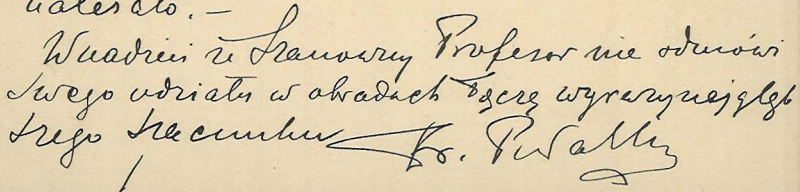 należało. –
W nadziei że Szanowny Profesor nie odmówi
Swego udziału w obradach łączę wyrazy najgłęb
szego szacunku Fr.